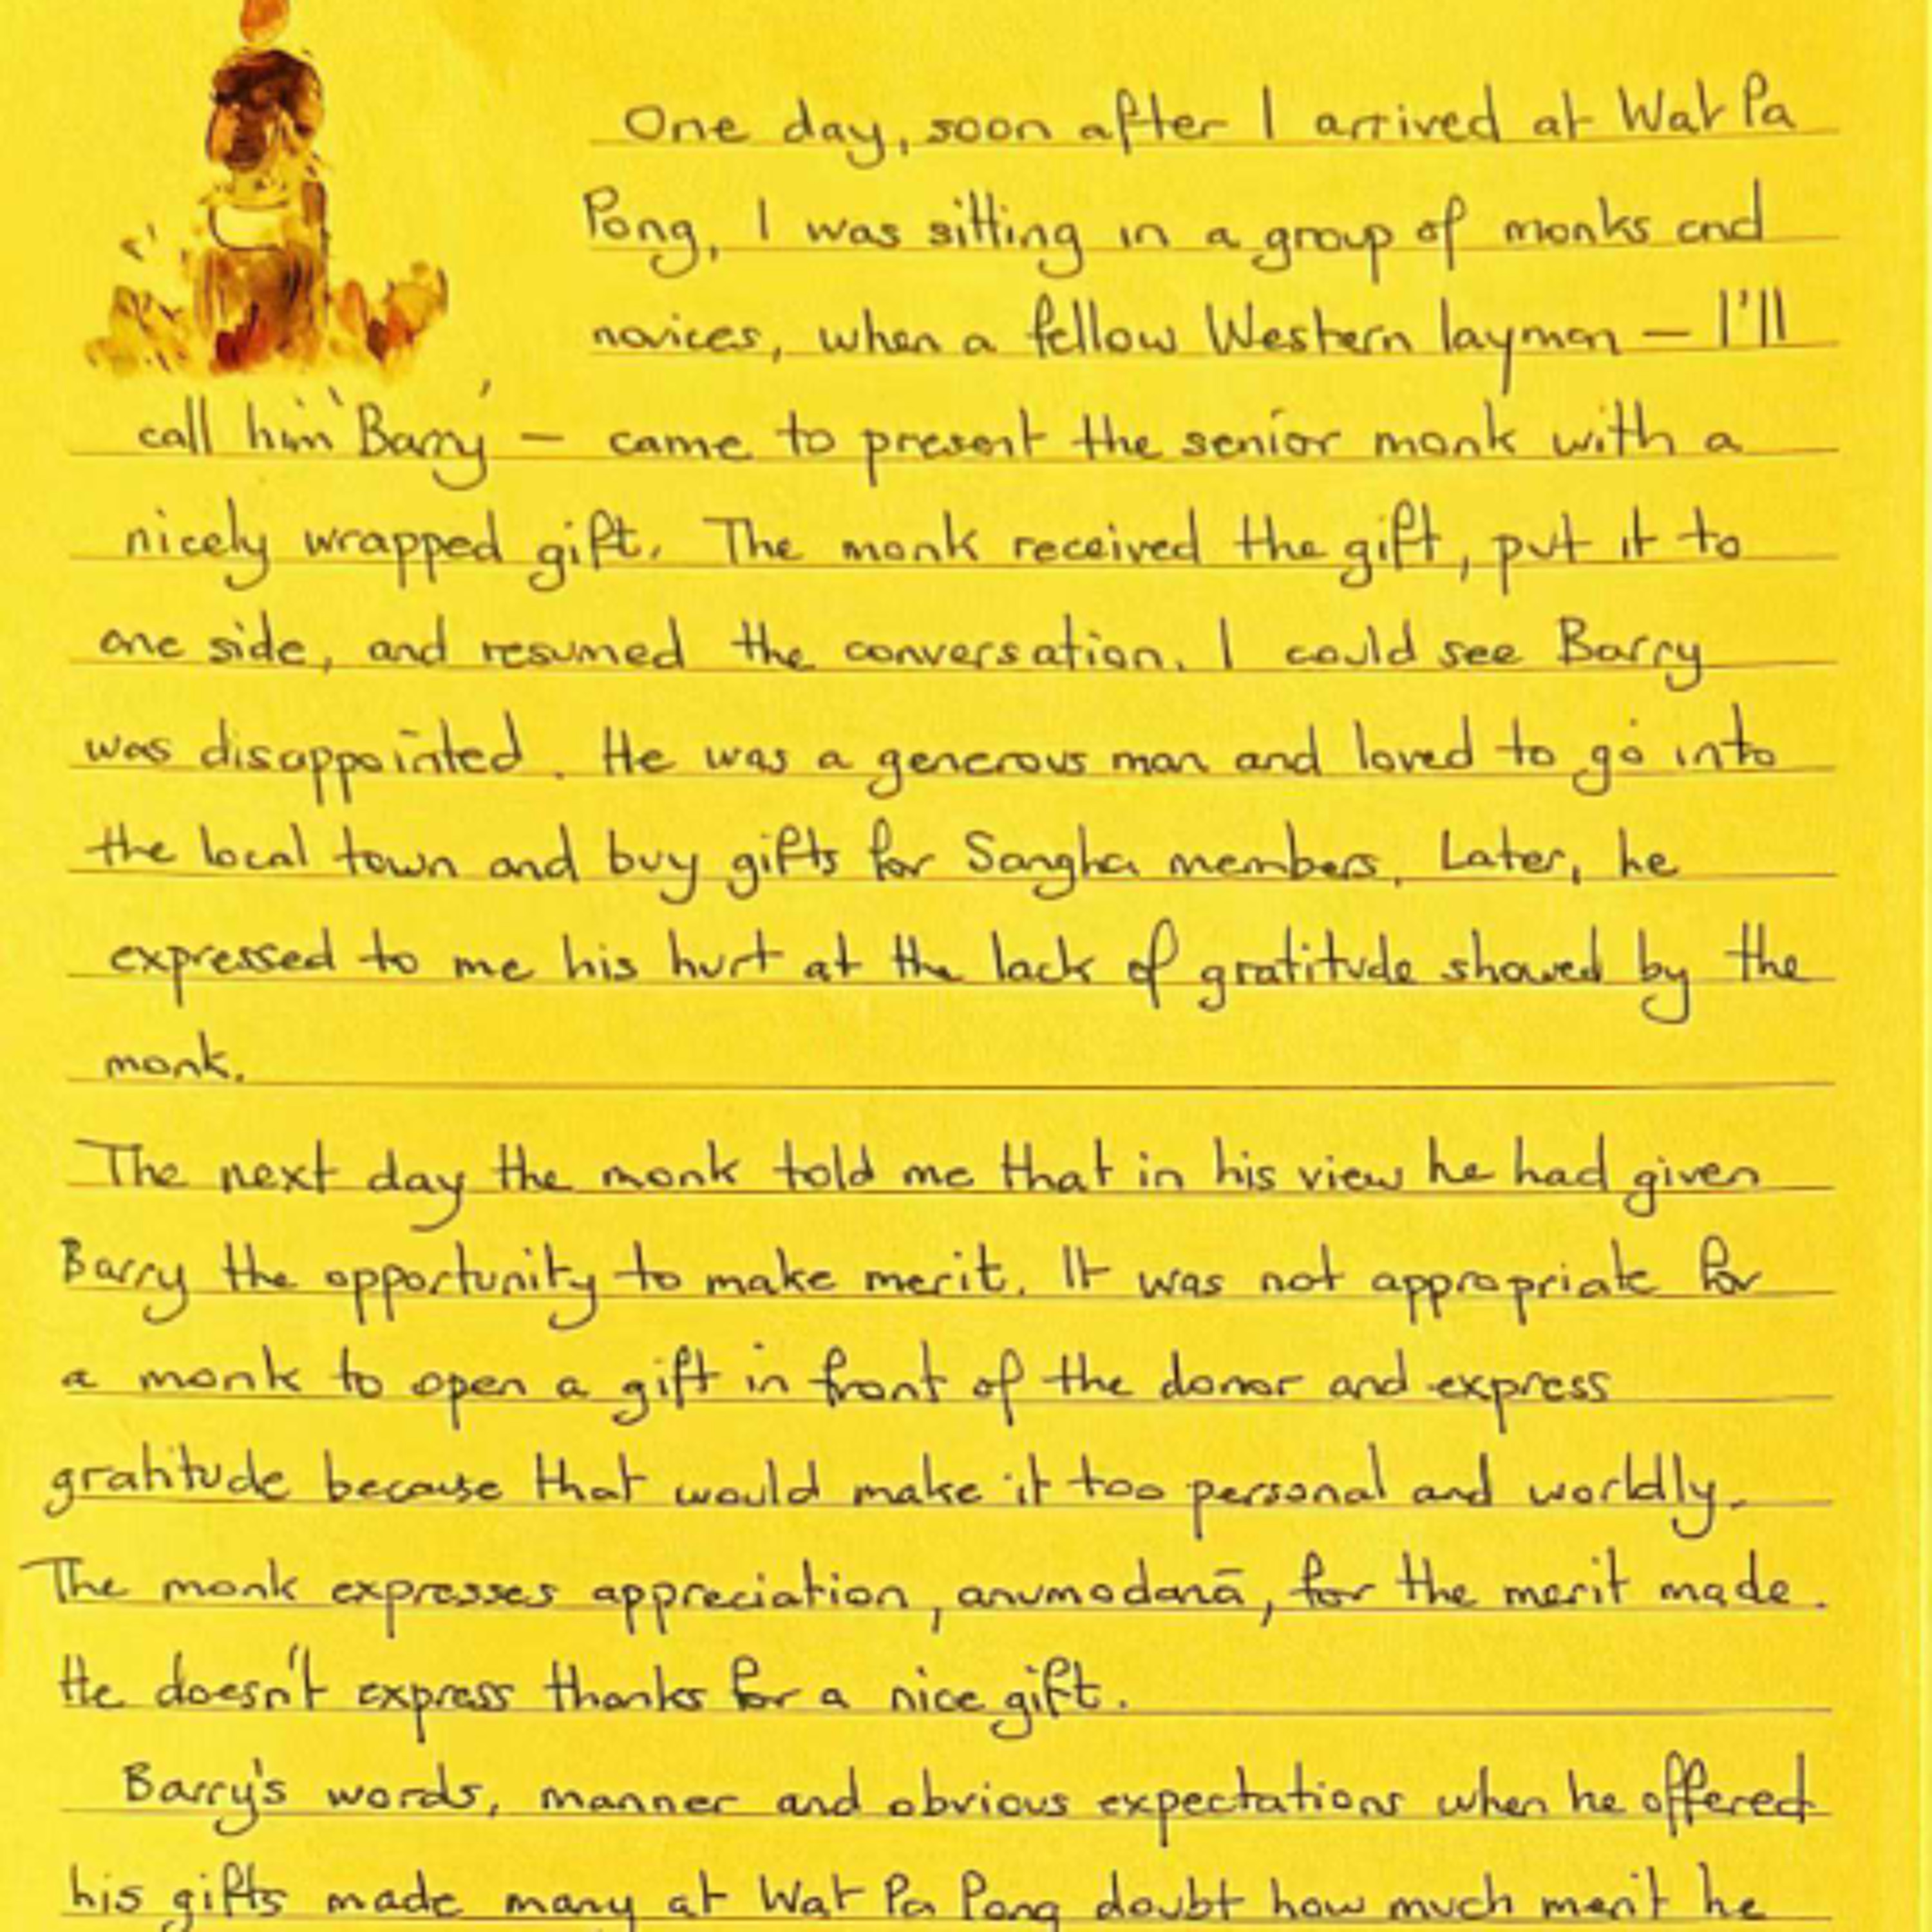 One day, soon after I arrived at Wat Pa
Pong, I was sitting in a group of monks and
novices, when a fellow Western layman – I'll
call him 'Barry' – came to present the senior monk with a
nicely wrapped gift. The monk received the gift, put it to
one side, and resumed the conversation. I could see Barry
was disappointed. He was a generous man and loved to go into
the local town and buy gifts for Sangha members. Later, he
expressed to me his hurt at the lack of gratitude showed by the
monk.
The next day the monk told me that in his view he had given
Barry the opportunity to make merit. It was not appropriate for
a monk to open a gift in front of the donor and express
gratitude because that would make it too personal and worldly.
The monk expresses appreciation, anumodanā, for the merit made.
He doesn't express thanks for a nice gift.
Barry's words, manner and obvious expectations when he offered
his gifts made many at Wat Pa Pong doubt how much merit he